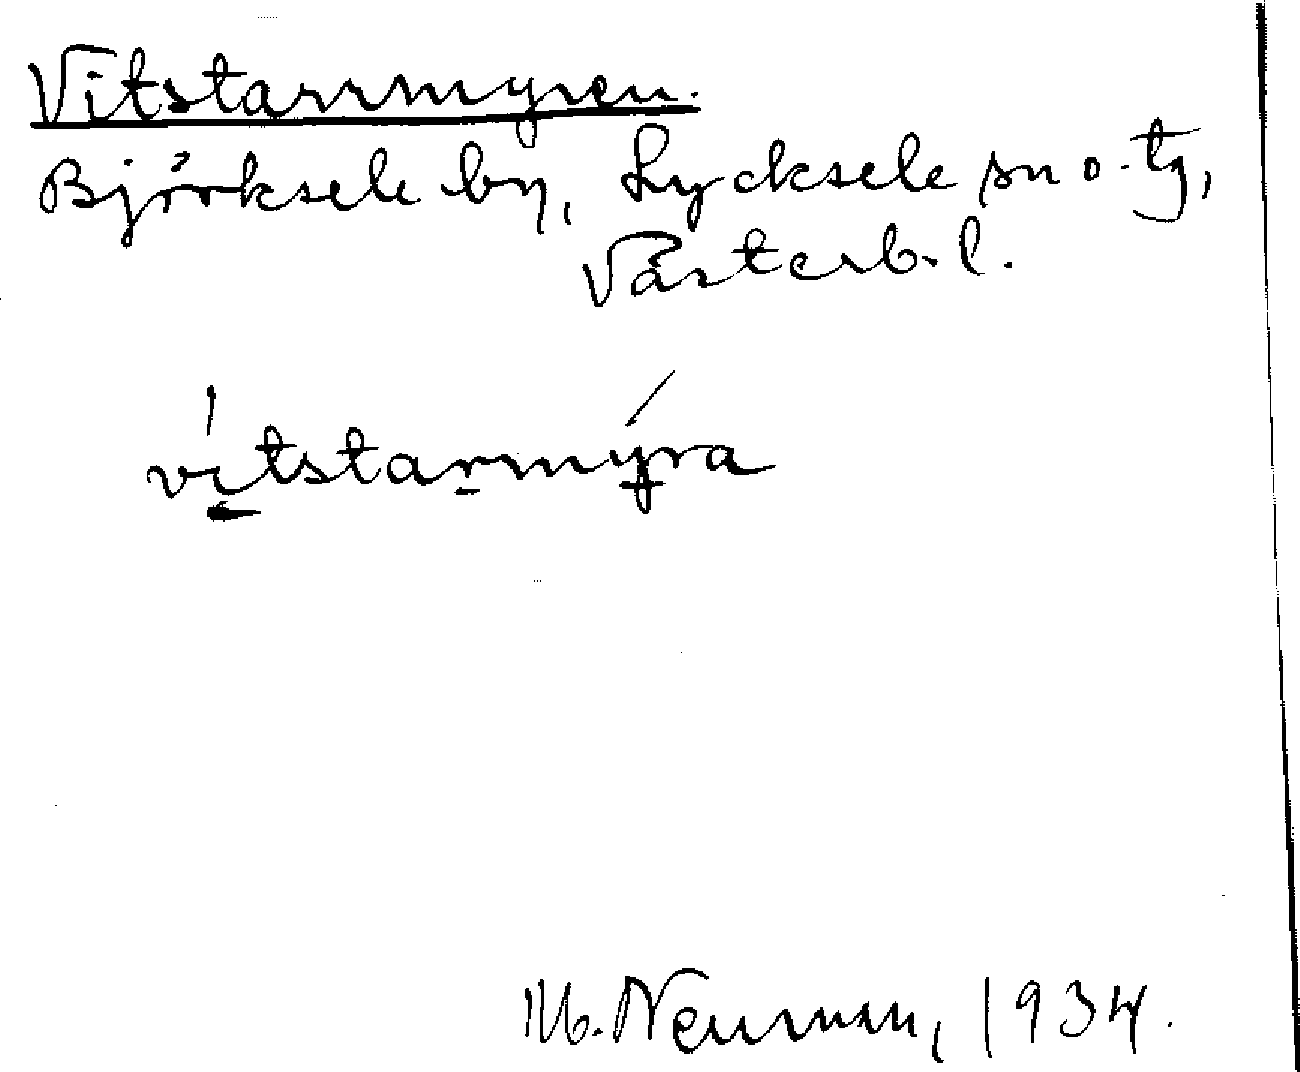 Vitstarrmyren.
Björksele by, Lycksele sn o. tg,
Västerb. l.
vitstarmyra
M. Neuman, 1934.